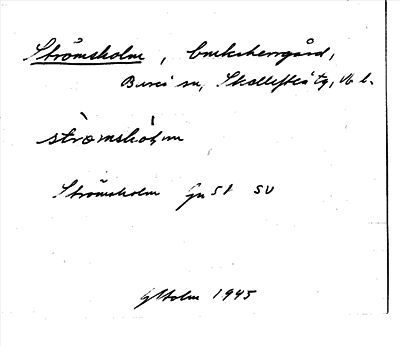 Strömsholm, bruksherrgård,
Bureå sn, Skellefteå tg, Vb l.
stròmshòlm
Strömsholm Gen St SV
GHolm 1945